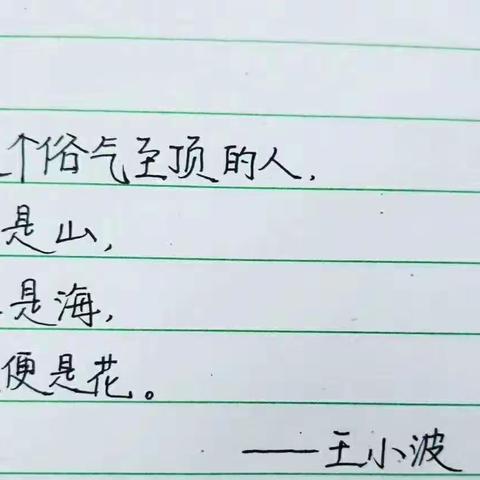 个俗气至顶的人，
是山，
是海，
便是花。
——王小波